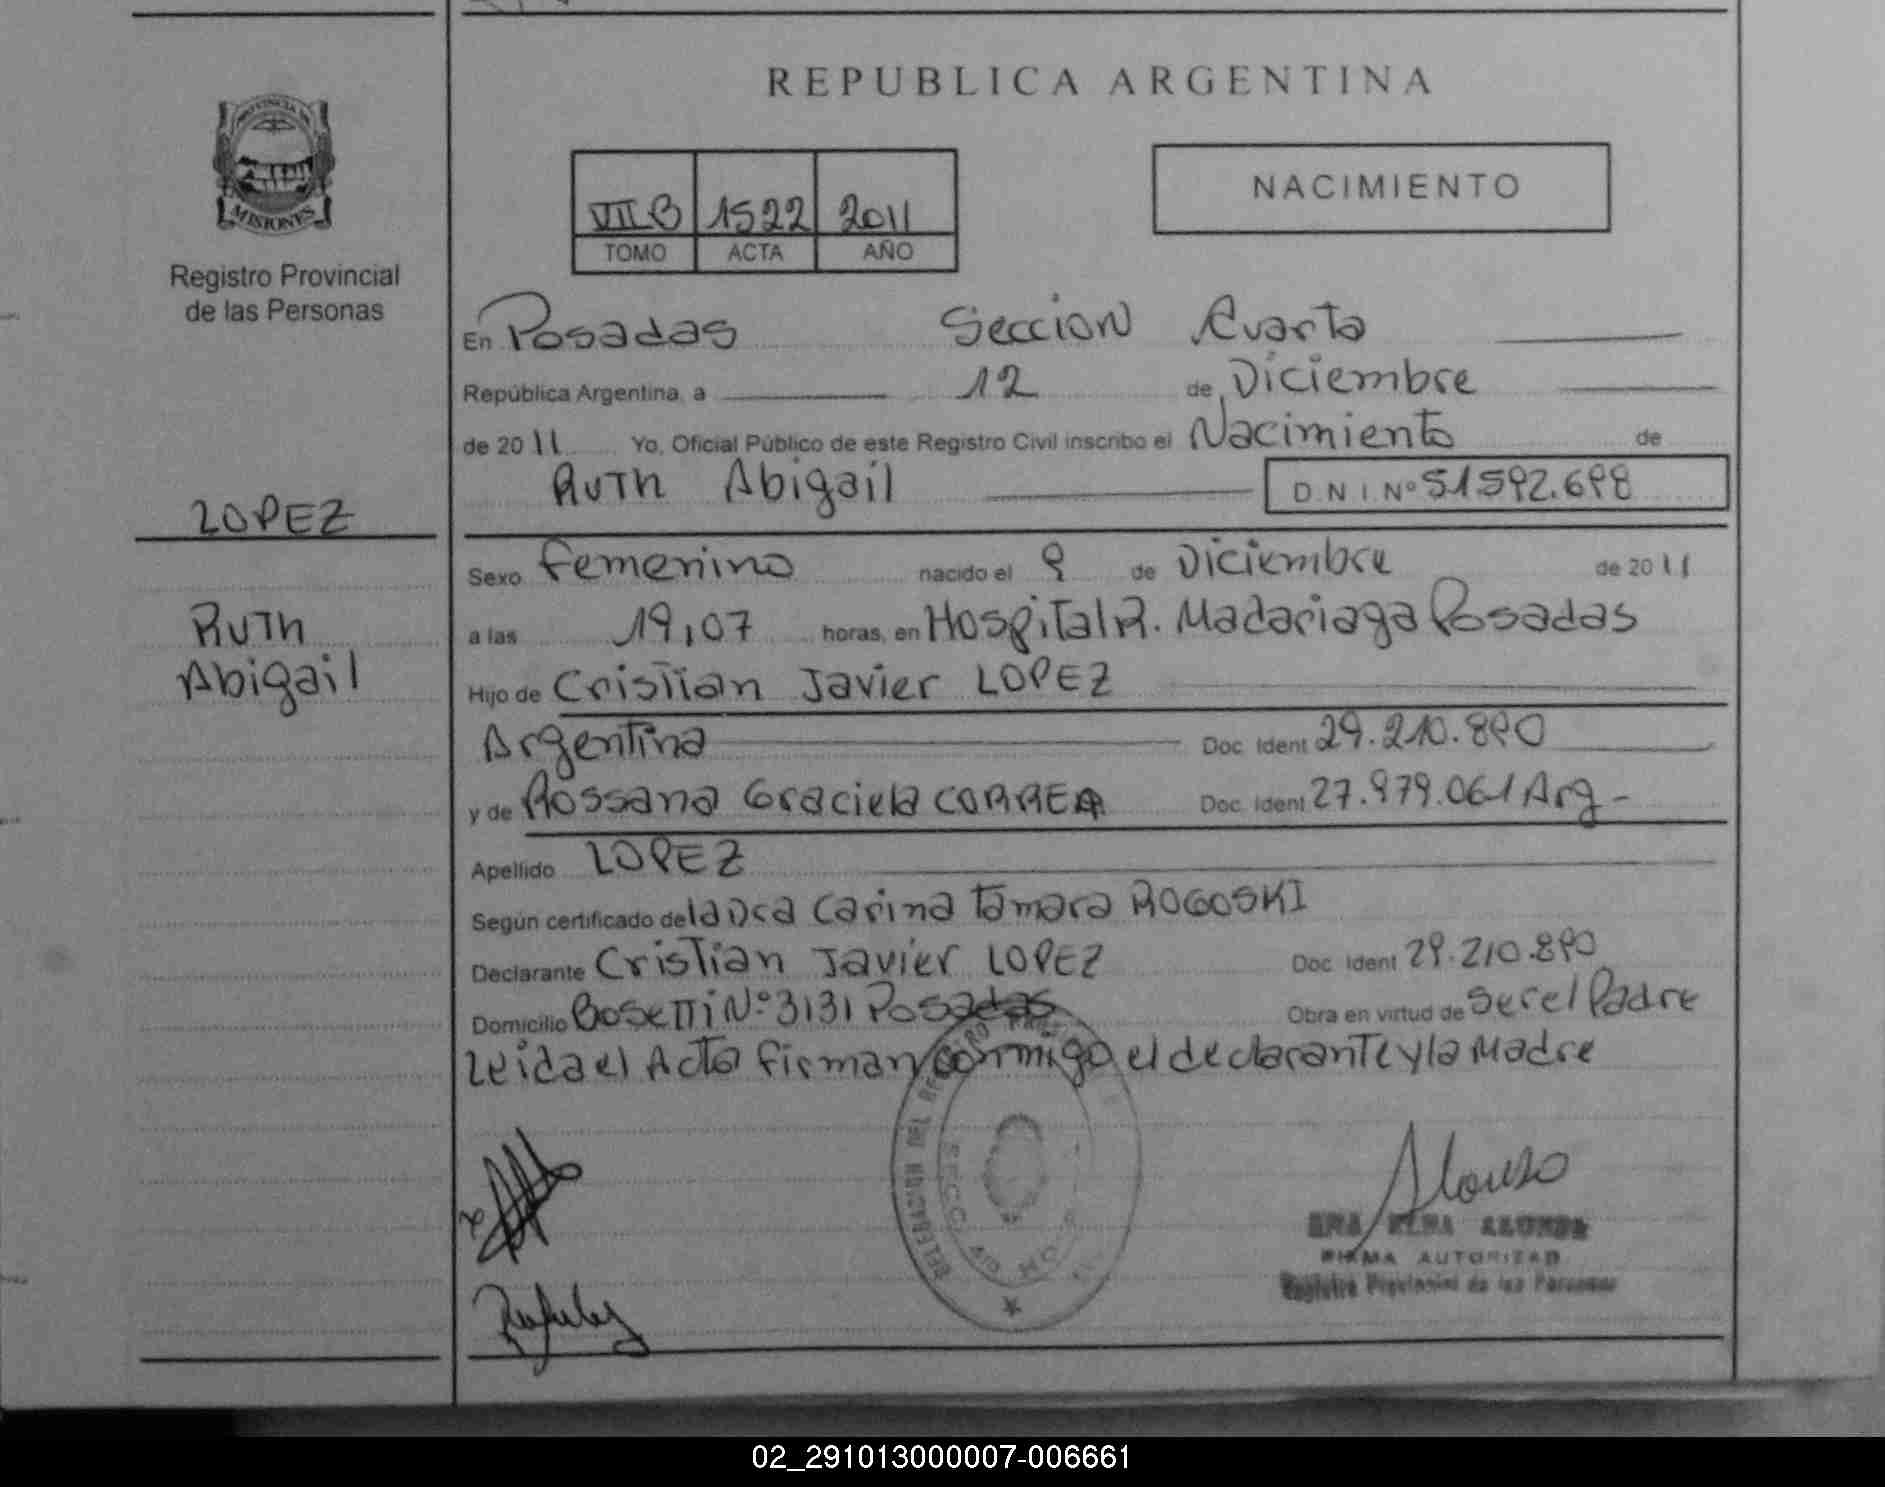 REPUBLICA ARGENTINA
PROVINCIA DE
MISIONES
Registro Provincial
de las Personas
VII B 1522 2011
TOMO ACTA AÑO
NACIMIENTO
En Posadas Seccion Cuarta
República Argentina, a 12 de Diciembre
de 2011 Yo, Oficial Público de este Registro Civil inscribo el Nacimiento de
Ruth Abigail D.N.I. Nº 51592.698
LOPEZ
Ruth
Abigail
Sexo Femenino nacido el 9 de Diciembre de 2011
a las 19,07 horas, en Hospital R. Madariaga Posadas
Hijo de Cristian Javier LOPEZ
Argentina Doc. Ident 29.210.890
y de Rossana Graciela CORREA Doc. Ident 27.979.061 Arg -
Apellido LOPEZ
Según certificado de la Dra Carina Tamara ROGOSKI
Declarante Cristian Javier LOPEZ Doc. Ident 29.210.890
Domicilio Bosetti Nº 3131 Posadas Obra en virtud de Ser el Padre
Leida el Acta firman conmigo el declarante y la Madre
DELEGACION DEL REGISTRO
SECC. 4ta
Alonso
ALONSO
FIRMA AUTORIZAD
Registro Provincial de las Personas
02_291013000007-006661